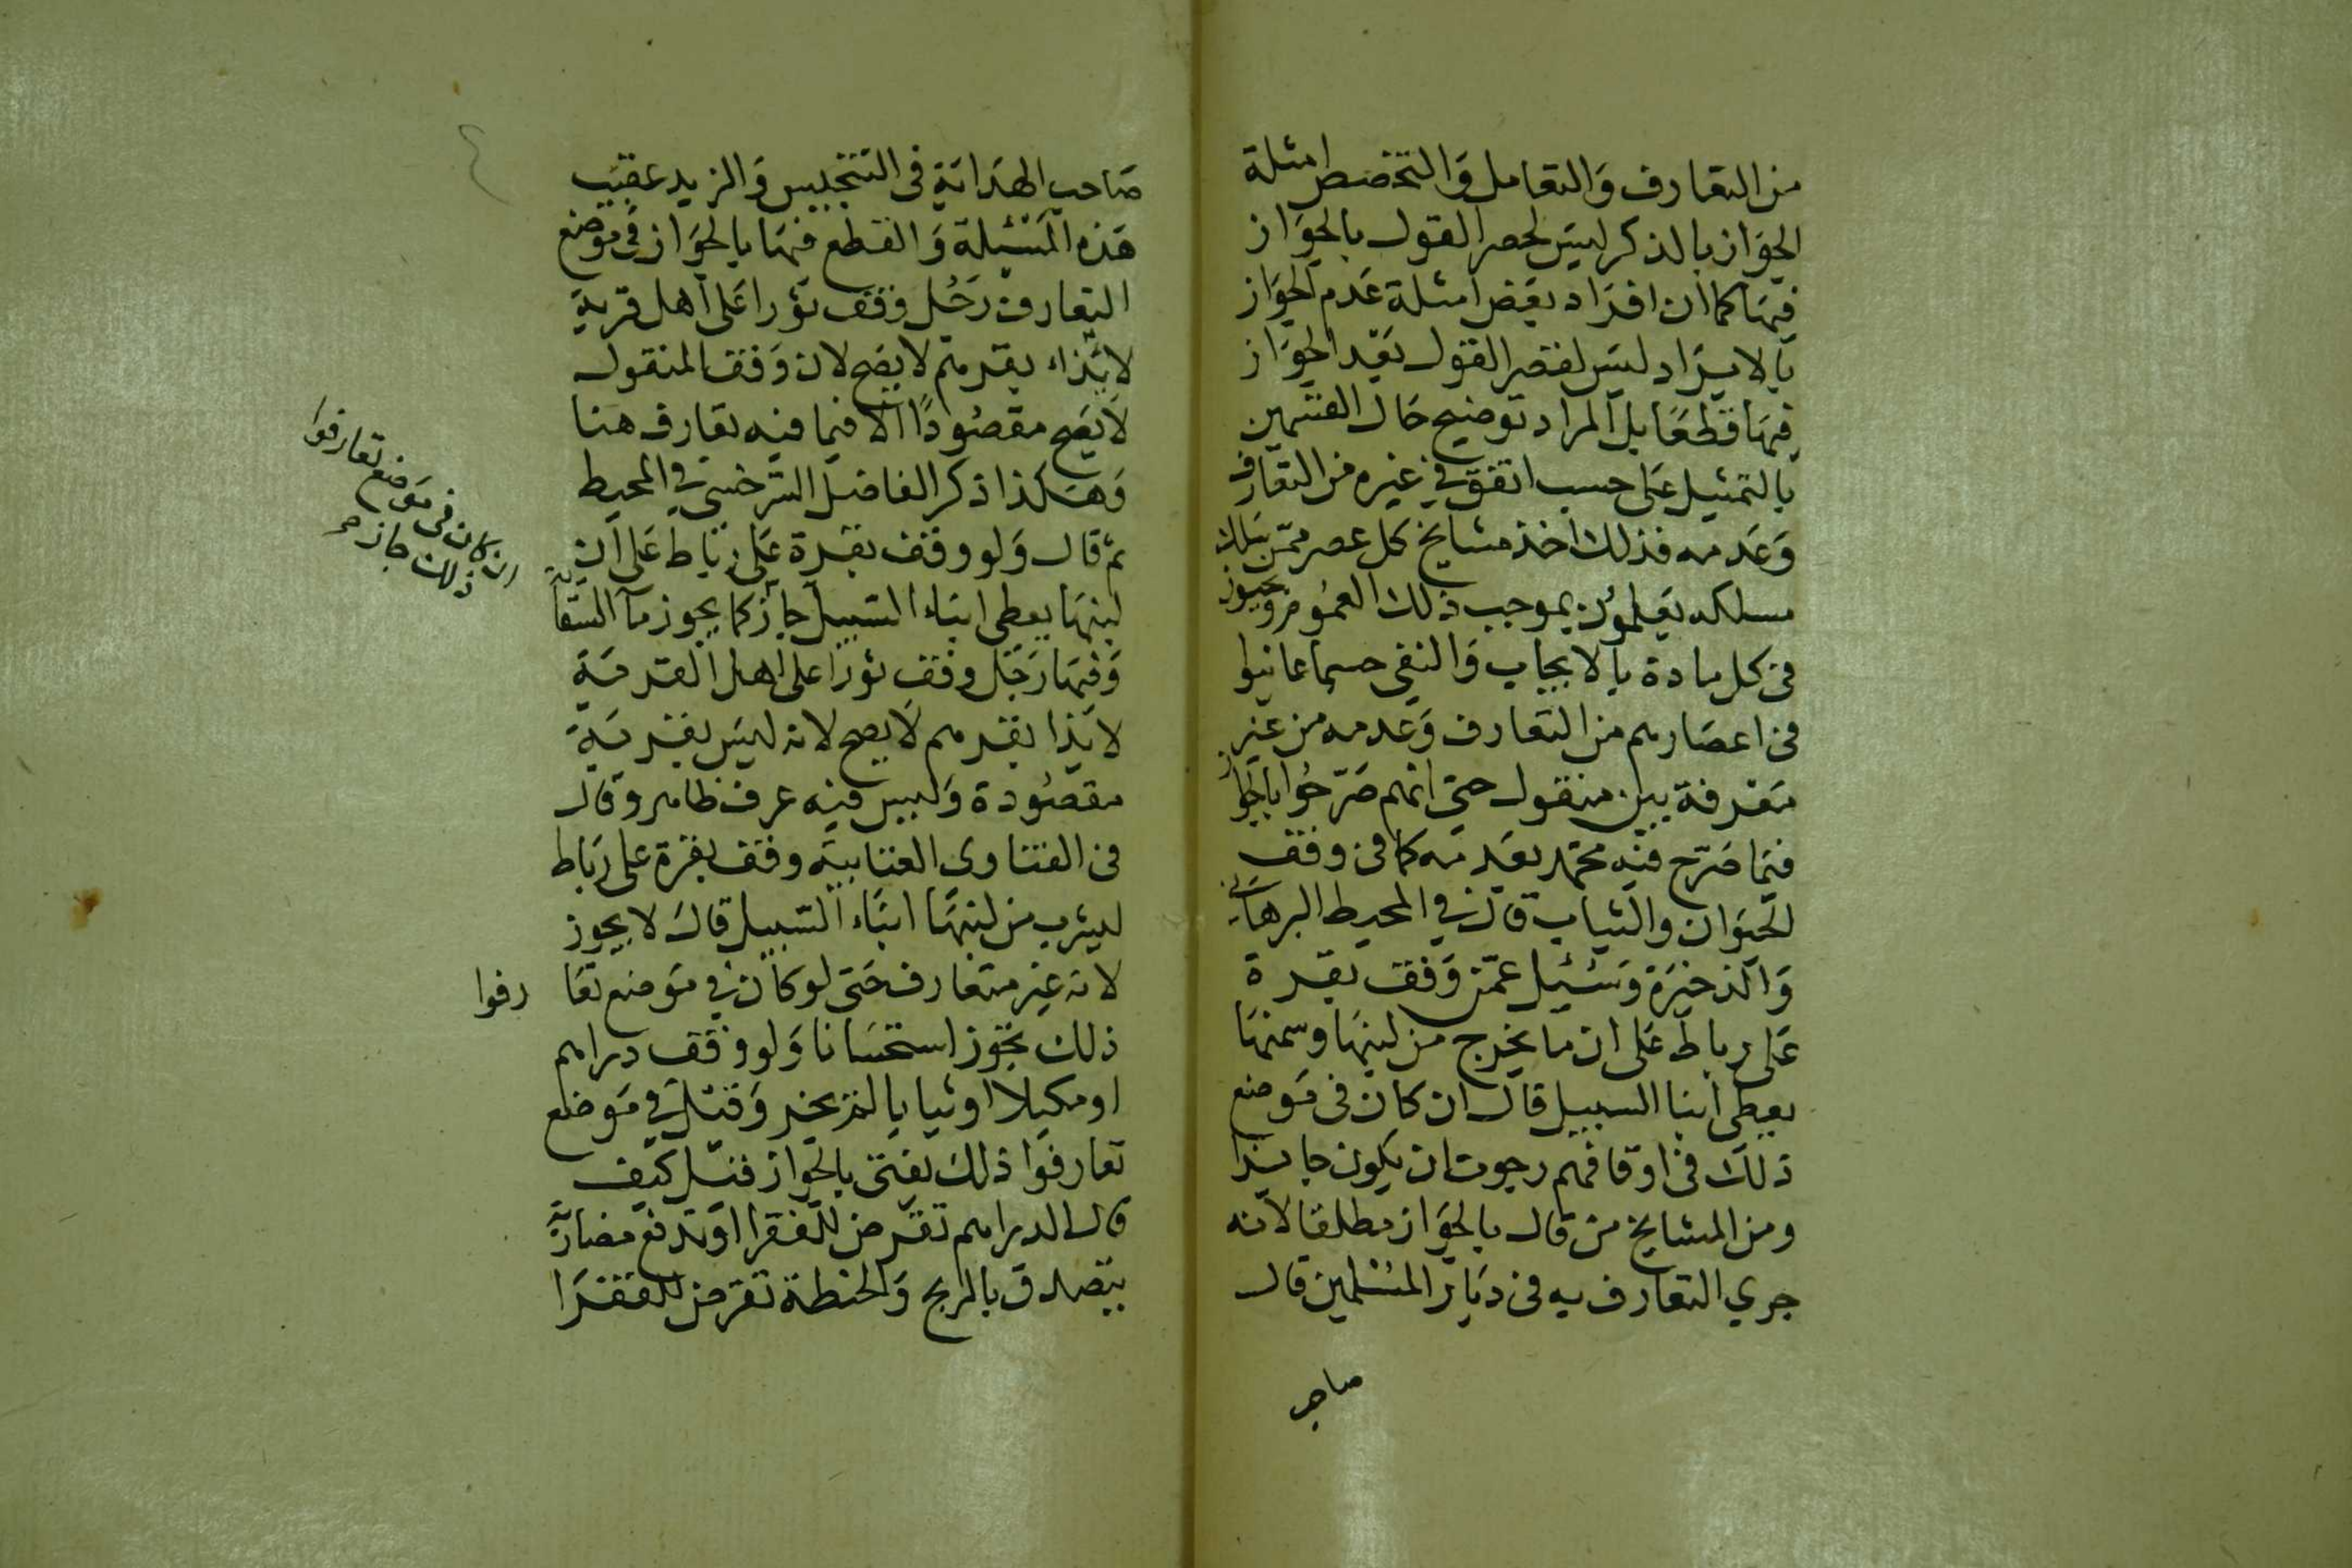 من التعارف والتعامل والتخصيص امثلة
الجواز بالذكر ليس لحصر القول بالجواز
فيها كما ان افراد بعض امثلة عدم الجواز
بالايراد ليس لقصر القول بعد الجواز
فيها قطعا بل المراد توضيح حال القسمين
بالتمثيل على حسب اتفق في غيره من التعارف
وعدمه فذلك اخذ مشايخ كل عصر ممن سلك
مسلكه يعلمون بموجب ذلك العموم
في كل مادة بالايجاب والنفي حسبما عاينوا
في اعصارهم من التعارف وعدمه من غير
تفرقة بين منقول حتى انهم صرحوا بالجواز
فيما صرح فيه محمد بعدمه كما في وقف
الحيوان والثياب قال في المحيط البرهاني
والذخيرة وسئيل عمن وقف بقرة
على رباط على ان ما يخرج من لبنها وسمنها
يعطى ابنا السبيل قال ان كان في موضع
ذلك في اوقافهم رجوت ان يكون جايزا
ومن المشايخ من قال بالجواز مطلقا لانه
جري التعارف به في ديار المسلمين قال
صاحب
صاحب الهداية في التنجيس والمزيد عقيب
هذه المسئيلة والقطع فيها بالجواز في موضع
التعارف رجل وقف ثورا على اهل قرية
لانزاء بقرهم لا يصح لان وقف المنقول
لا يصح مقصودا الا فيما فيه تعارف هنا
وهكذا ذكر الفاضل السرخسي في المحيط
ثم قال ولو وقف بقرة على رباط على ان
لبنها يعطى ابناء السبيل جاز كما يجوز مآ السقاية
ان كان في موضع تعارفوا
ذلك جاز صح
وفيها رجل وقف ثورا على اهل القرية
لانزا بقرهم لا يصح لانه ليس بقربة
مقصودة وليس فيه عرف ظاهر وقال
في الفتاوى العتابيه وقف بقرة على رباط
ليشرب من لبنها ابناء السبيل قال لا يجوز
لانه غير متعارف حتى لو كان في موضع تعارفوا
ذلك يجوز استحسانا ولو وقف دراهم
او مكيلا او ثيابا لم يجز وقيل في موضع
تعارفوا ذلك يفتى بالجواز قيل كيف
قال الدراهم تقرض للفقرا او تدفع مضاربة
يتصدق بالربح والحنطة تقرض للفقرا